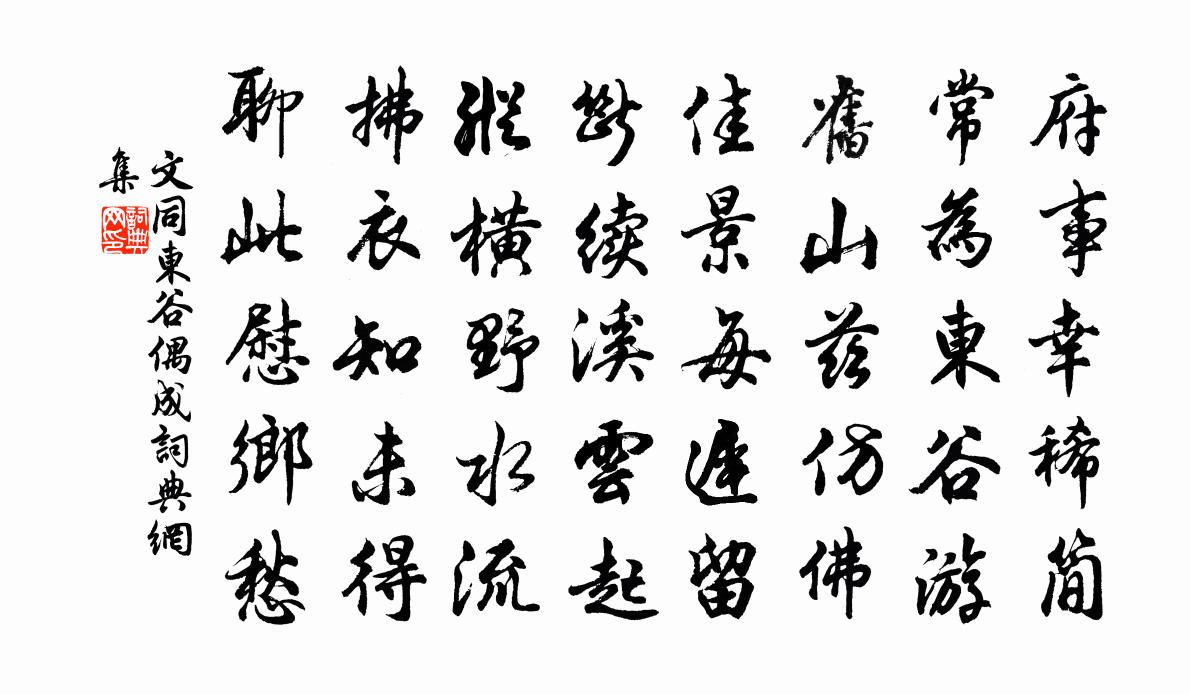 府事幸稀简
常為東谷游
舊山茲仿佛
佳景每遲留
斷续溪雲起
縱横野水流
拂衣知未得
聊此慰鄉愁
文同東谷偶成詞典網
集
詞典网印